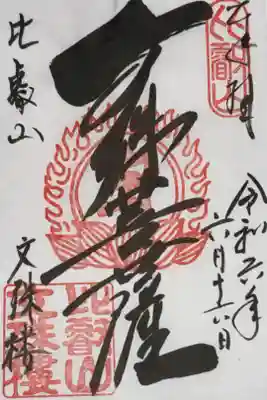 奉拝
令和六年
六月十六日
文殊菩薩
比叡山
文殊楼
比叡山
比叡山
文殊楼